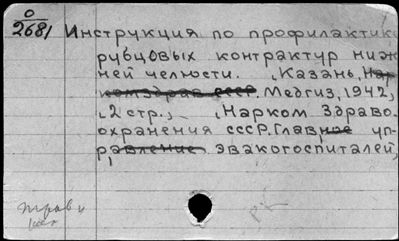 О
2681 Инструкция по профилактике
рубцовых контрактур ниж
ней челюсти. , Казань, Нар
комздрав СССР. Медгиз, 1942,
, 2 стр., , Нарком. Здраво-
охранения СССР. Главное уп-
равление эвакогоспиталей,